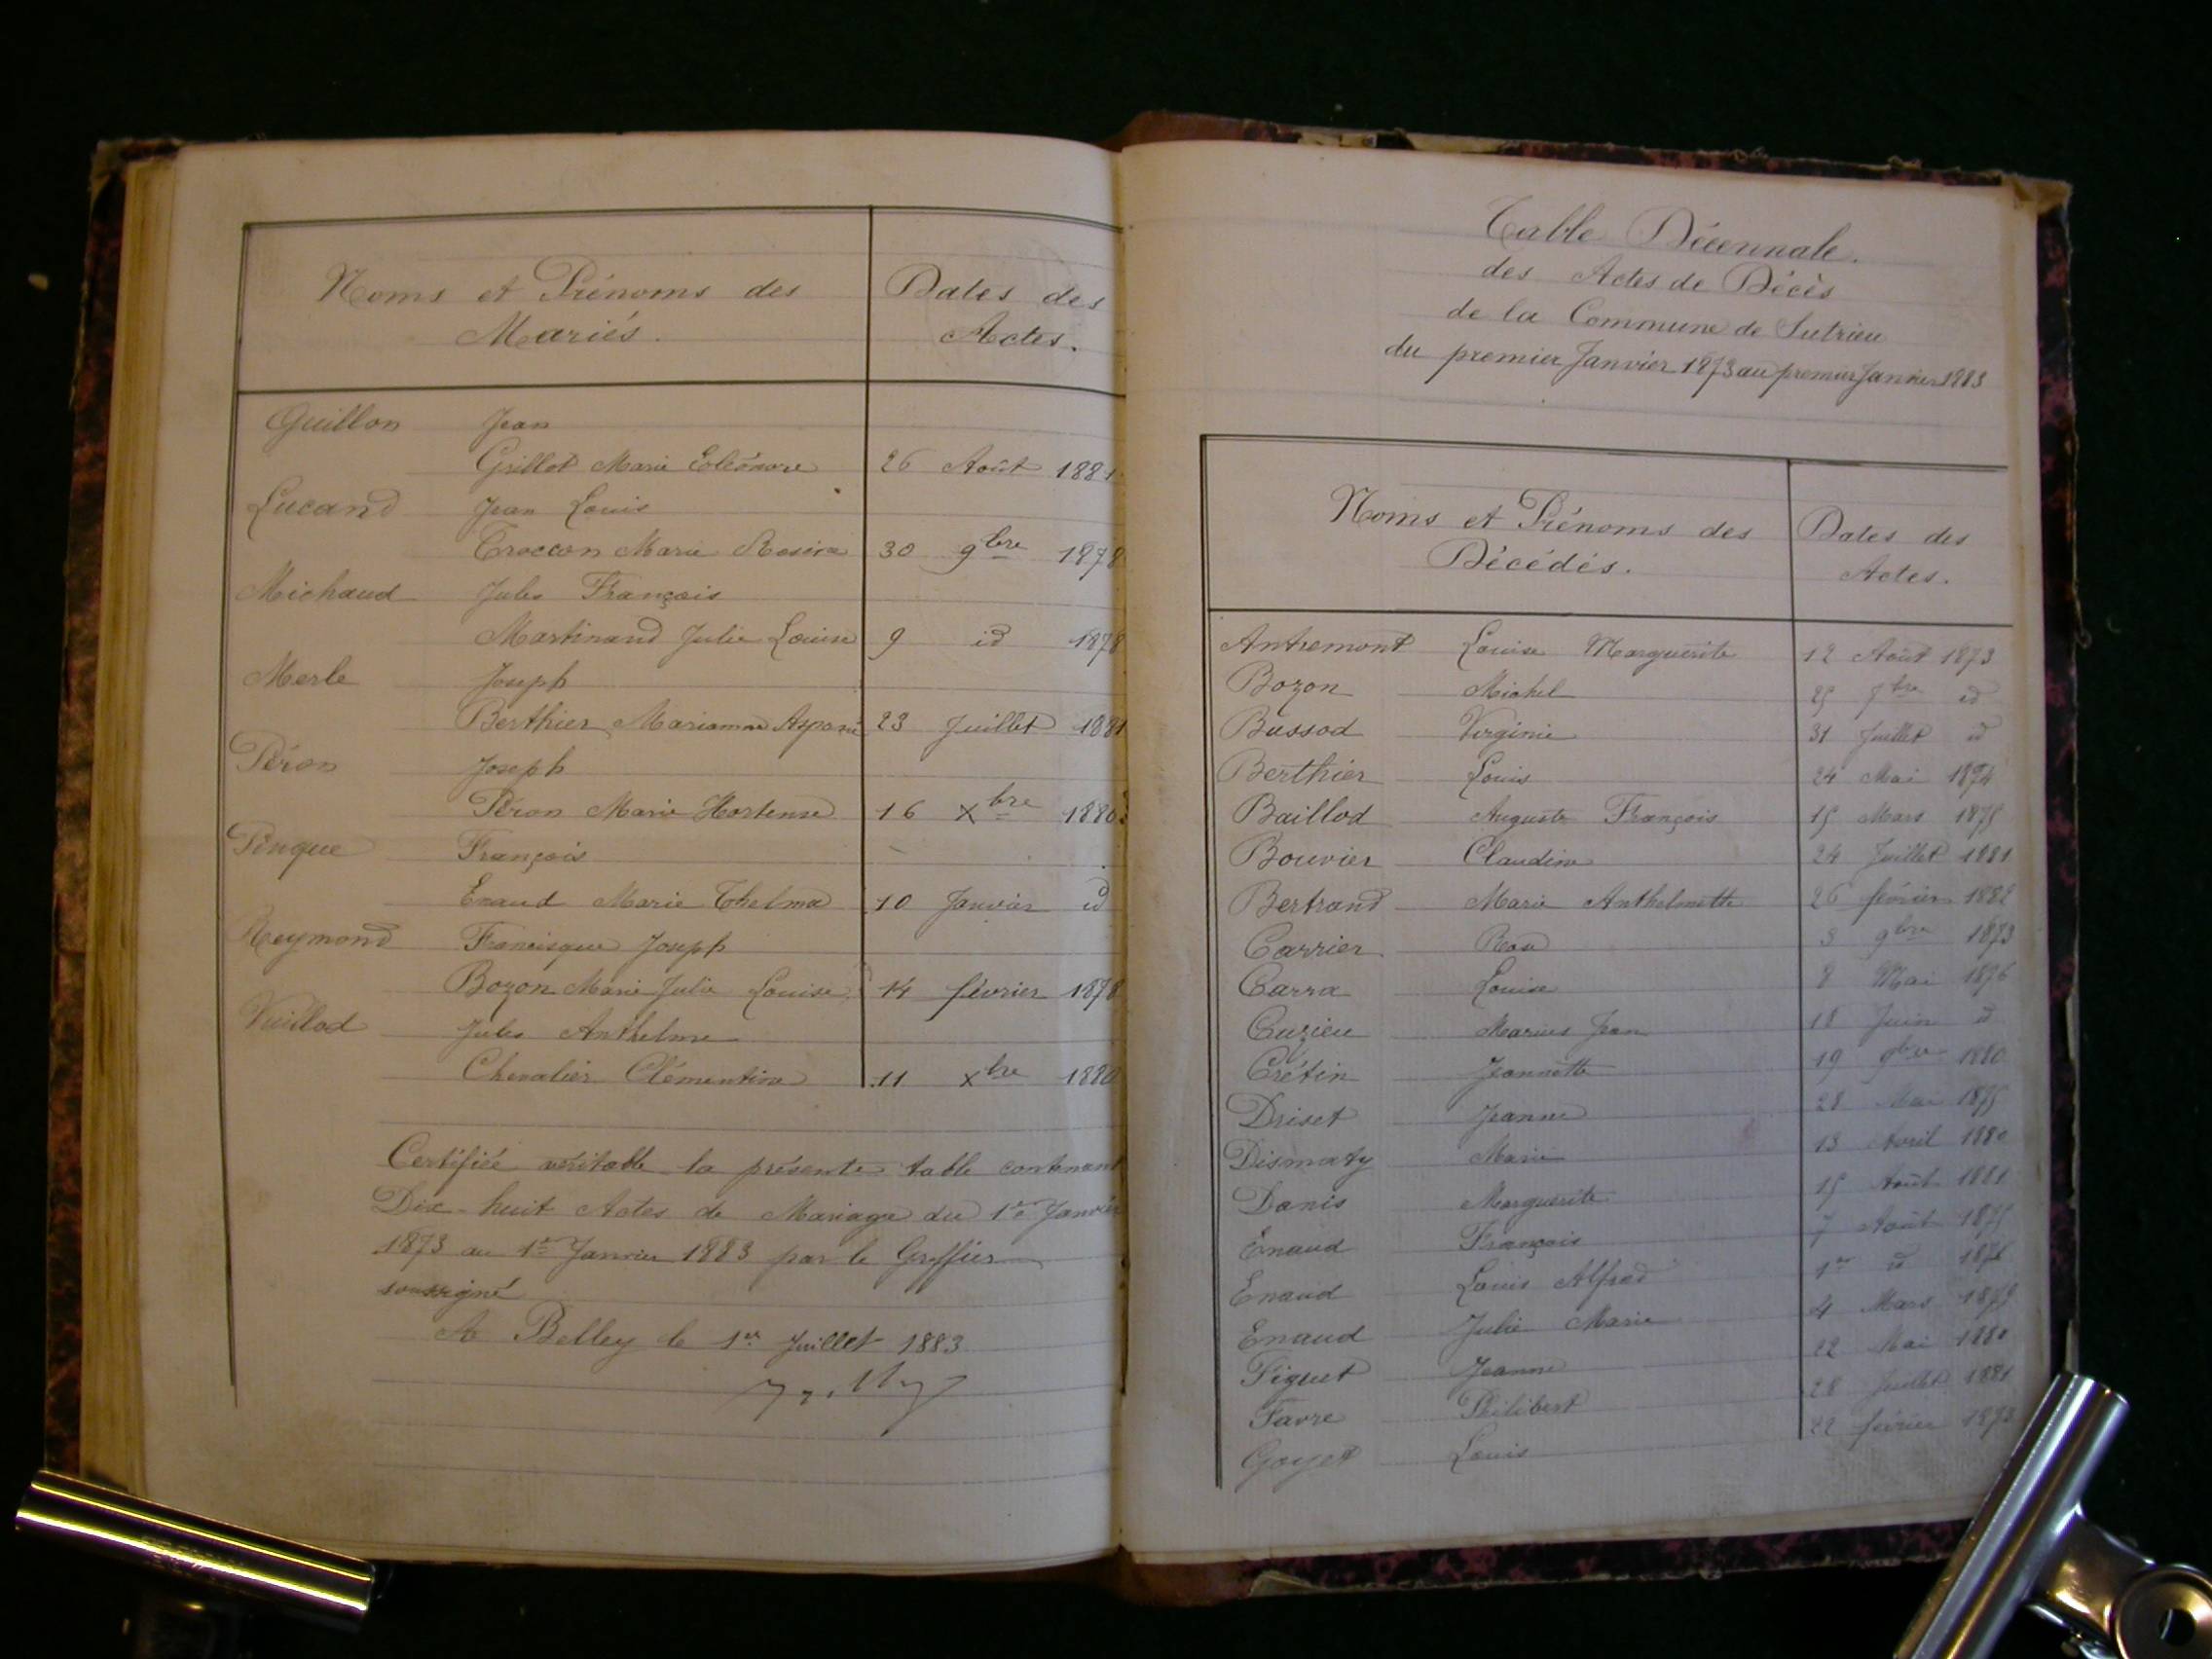 Noms et Prénoms des
Mariés.
Dates des
Actes.
Guillon Jean
Grillet Marie Eléonore 26 Août 1881
Lucand Jean Louis
Troccon Marie Rosine 30 9bre 1878
Michaud Jules François
Martinand Julie Louise 9 id 1878
Merle Joseph
Berthier Marianne 23 Juillet 1881
Péron Joseph
Péron Marie Hortense 16 Xbre 1880
Pinque François
Enaud Marie Thelma 10 Janvier id
Reymond Francisque Joseph
Bozon Marie Julie Louise 14 février 1878
Vuillod Jules Anthelme
Chevalier Clémentine 11 Xbre 1880
Certifiée véritable la présente table contenant
Dix-huit Actes de Mariage du 1er Janvier
1873 au 1er Janvier 1883 par le Greffier
soussigné
A Belley le 1er Juillet 1883
Table Décennale.
des Actes de Décès
de la Commune de Sutrieu
du premier Janvier 1873 au premier Janvier 1883
Noms et Prénoms des
Décédés.
Dates des
Actes.
Antremont Louise Marguerite 12 Août 1873
Bozon Michel 25 7bre id
Bussod Virginie 31 Juillet id
Berthier Louis 24 Mai 1874
Baillod Auguste François 15 Mars 1875
Bouvier Claudine 24 Juillet 1881
Bertrand Marie Anthelmette 26 février 1882
Carrier Rose 3 9bre 1873
Carra Louise 8 Mai 1876
Cuzieu Marius Jean 18 Juin id
Crétin Jeannette 19 9bre 1880
Driset Jeanne 28 Mai 1875
Dismaty Marie 13 Avril 1880
Danis Marguerite 15 Août 1881
Enaud François 7 Août 1875
Enaud Louis Alfred 1er id
Enaud Julie Marie 4 Mars 1879
Figuet Jeanne 22 Mai 1880
Favre Philibert 28 Juillet 1881
Goyet Louis 22 février 1873